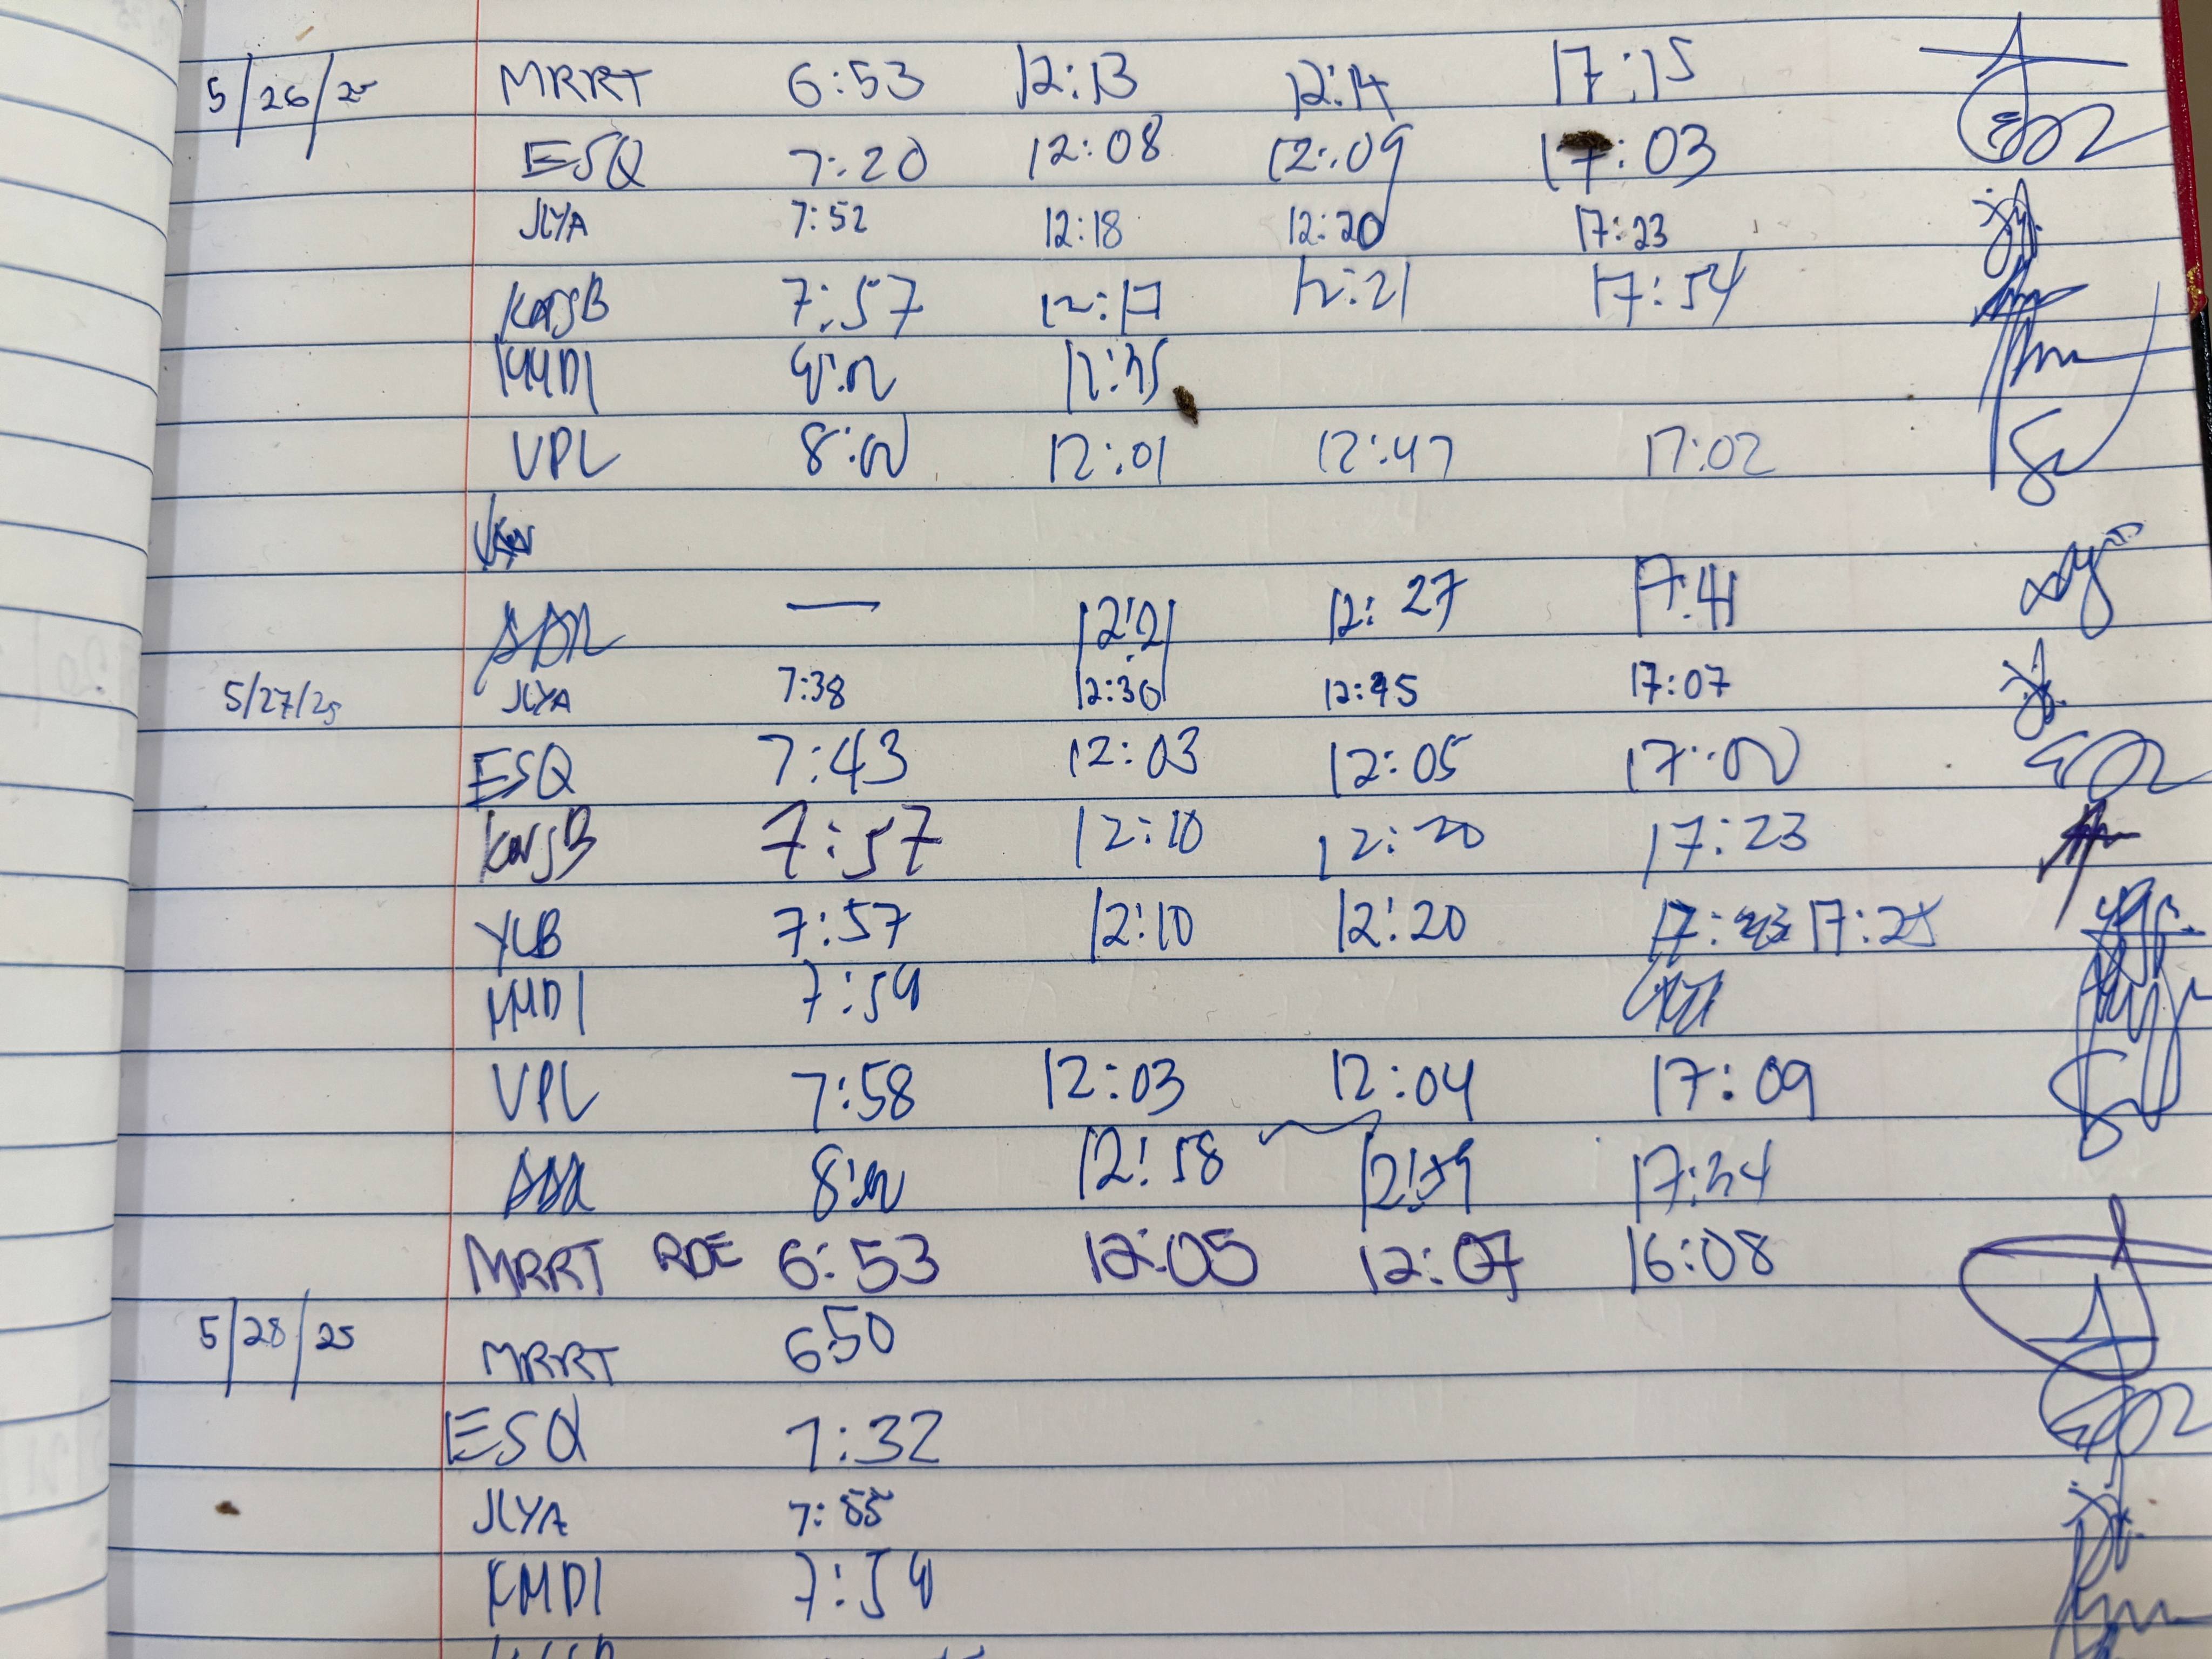 5/26/25 MRRT 6:53 12:13 12:14 17:15
ESQ 7:20 12:08 12:09 17:03
JLYA 7:52 12:18 12:20 17:23
KorsB 7:57 12:17 12:21 17:54
KMDI 12:35
VPL 8:00 12:01 12:47 17:02
— 12:21 12:27 17:41
5/27/25 JLYA 7:38 12:30 12:45 17:07
ESQ 7:43 12:03 12:05 17:00
KorsB 7:57 12:10 12:20 17:23
YLB 7:57 12:10 12:20 17:25
KMDI 7:59
VPL 7:58 12:03 12:04 17:09
8:00 12:58 12:59 17:34
MRRT RDE 6:53 12:05 12:07 16:08
5/28/25 MRRT 6:50
ESQ 7:32
JLYA 7:55
KMDI 7:59